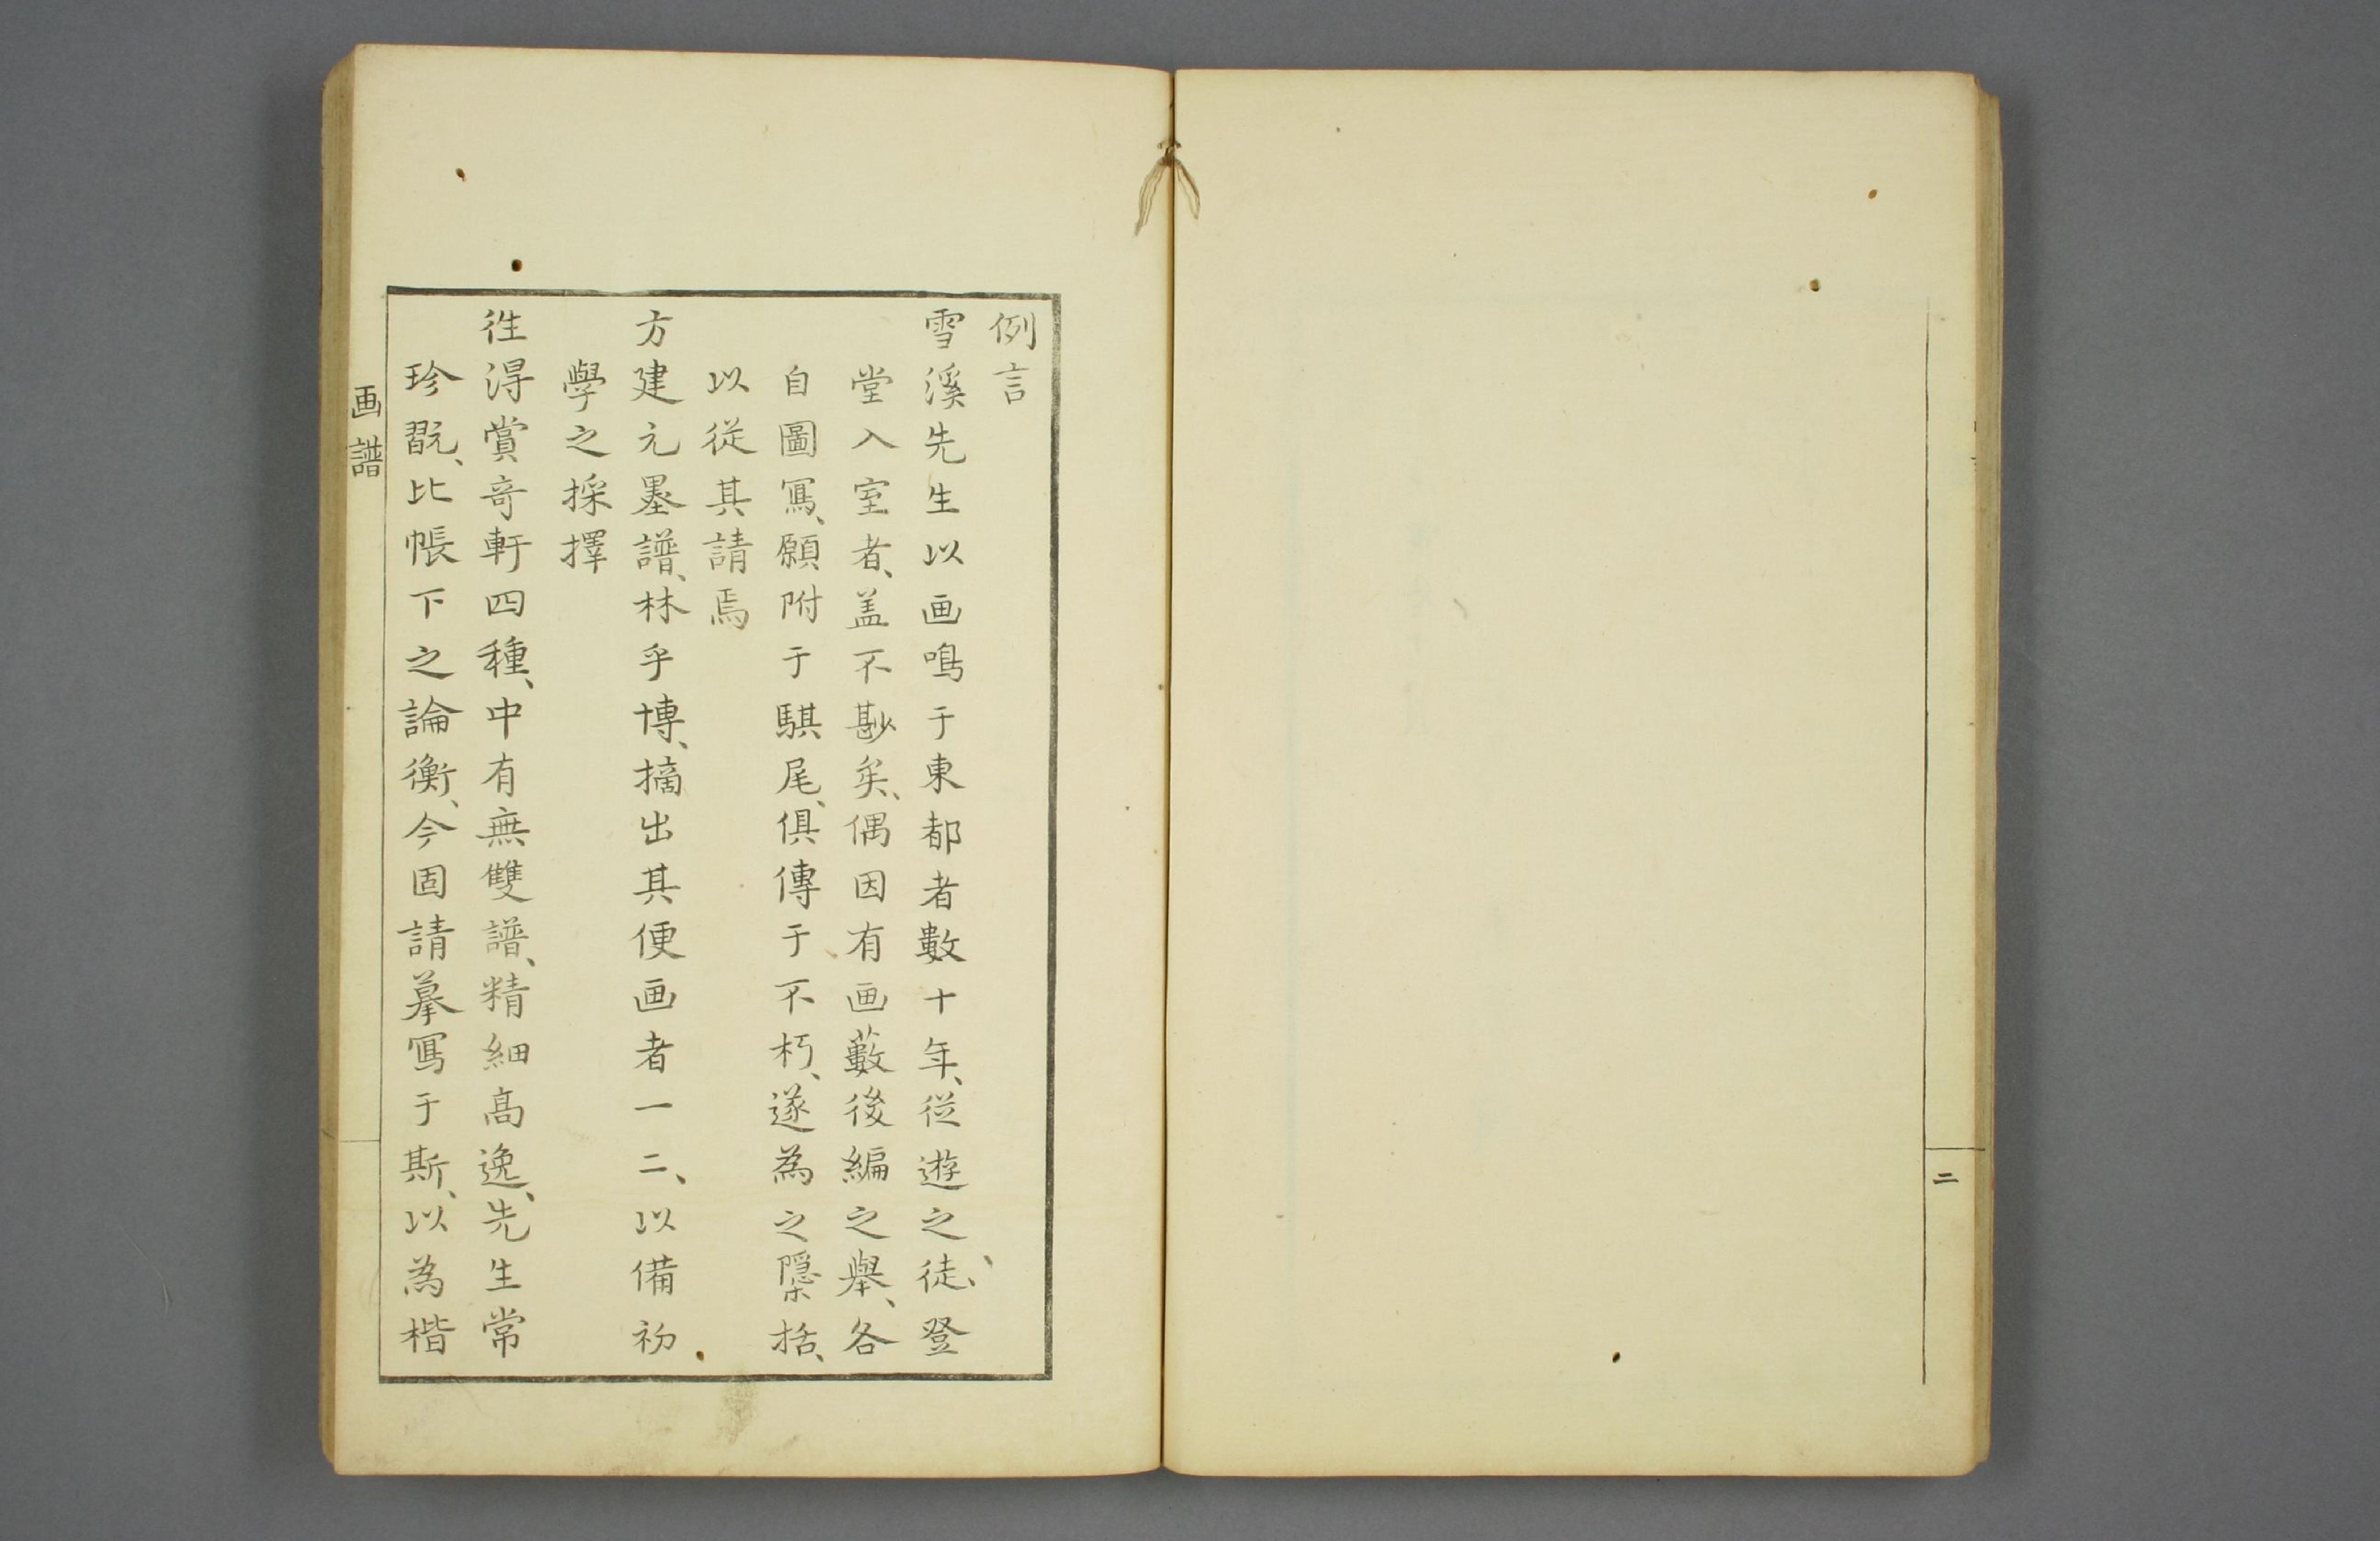 二
例言
雪溪先生以画鳴于東都者數十年、從遊之徒、登
堂入室者、盖不尠矣、偶因有画藪後編之舉、各
自圖寫、願附于騏尾、俱傳于不朽、遂為之隱括、
以從其請焉
方建元墨譜、林乎博、摘出其便画者一二、以備初
學之採擇
徃得賞奇軒四種、中有無雙譜、精細高逸、先生常
珍翫、比帳下之論衡、今固請摹寫于斯、以為楷
画譜